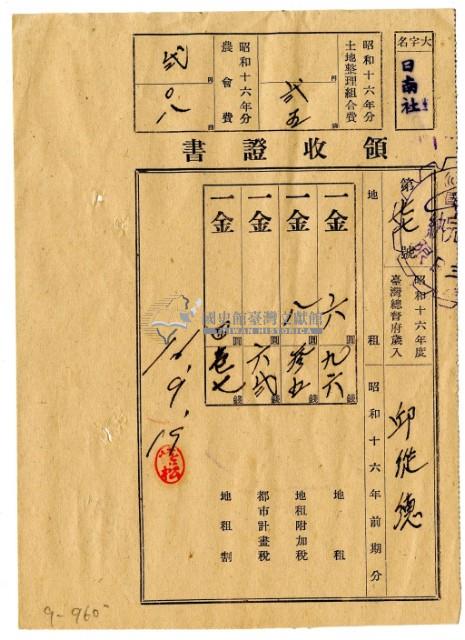 大字名
日南社
昭和十六年分
土地整理組合費
圓
弐五
昭和十六年分
農會費
弐
圓
〇八
領收證書
第
號
昭和十六年度
臺灣總督府歲入
地租
昭和十六年前期分
邱從德
一金
六圓九六錢
地租
一金
一圓拾五錢
地租附加稅
一金
圓六弐錢
都市計畫稅
一金
四圓壱七錢
地租割
16.9.19
國史館臺灣文獻館
TAIWAN HISTORICA
9-960